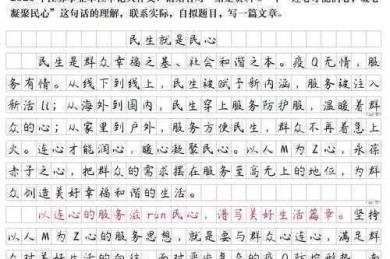 凝聚民心”这句话的理解，联系实际，自拟题目，写一篇文章。
民生就是民心
民生是群众幸福之基、社会和谐之本。疫Q无情，服
务有情。从线下到线上，民生被赋予新内涵，服务被注入
新活ll；从海外到国内，民生穿上服务防护服，温暖着群
众的心；从家里到户外，服务方便民生，群众不再着急上
火。连心才能润心，暖心凝聚民心。以人M为Z心，永葆
赤子之心，把群众的需求摆在服务至高无上的地位，为群
众创造美好幸福和谐的生活。
以连心的服务滋run民心，谱写美好生活篇章。坚持
以人M为Z心的服务思想，就是要与群众心连心，满足群